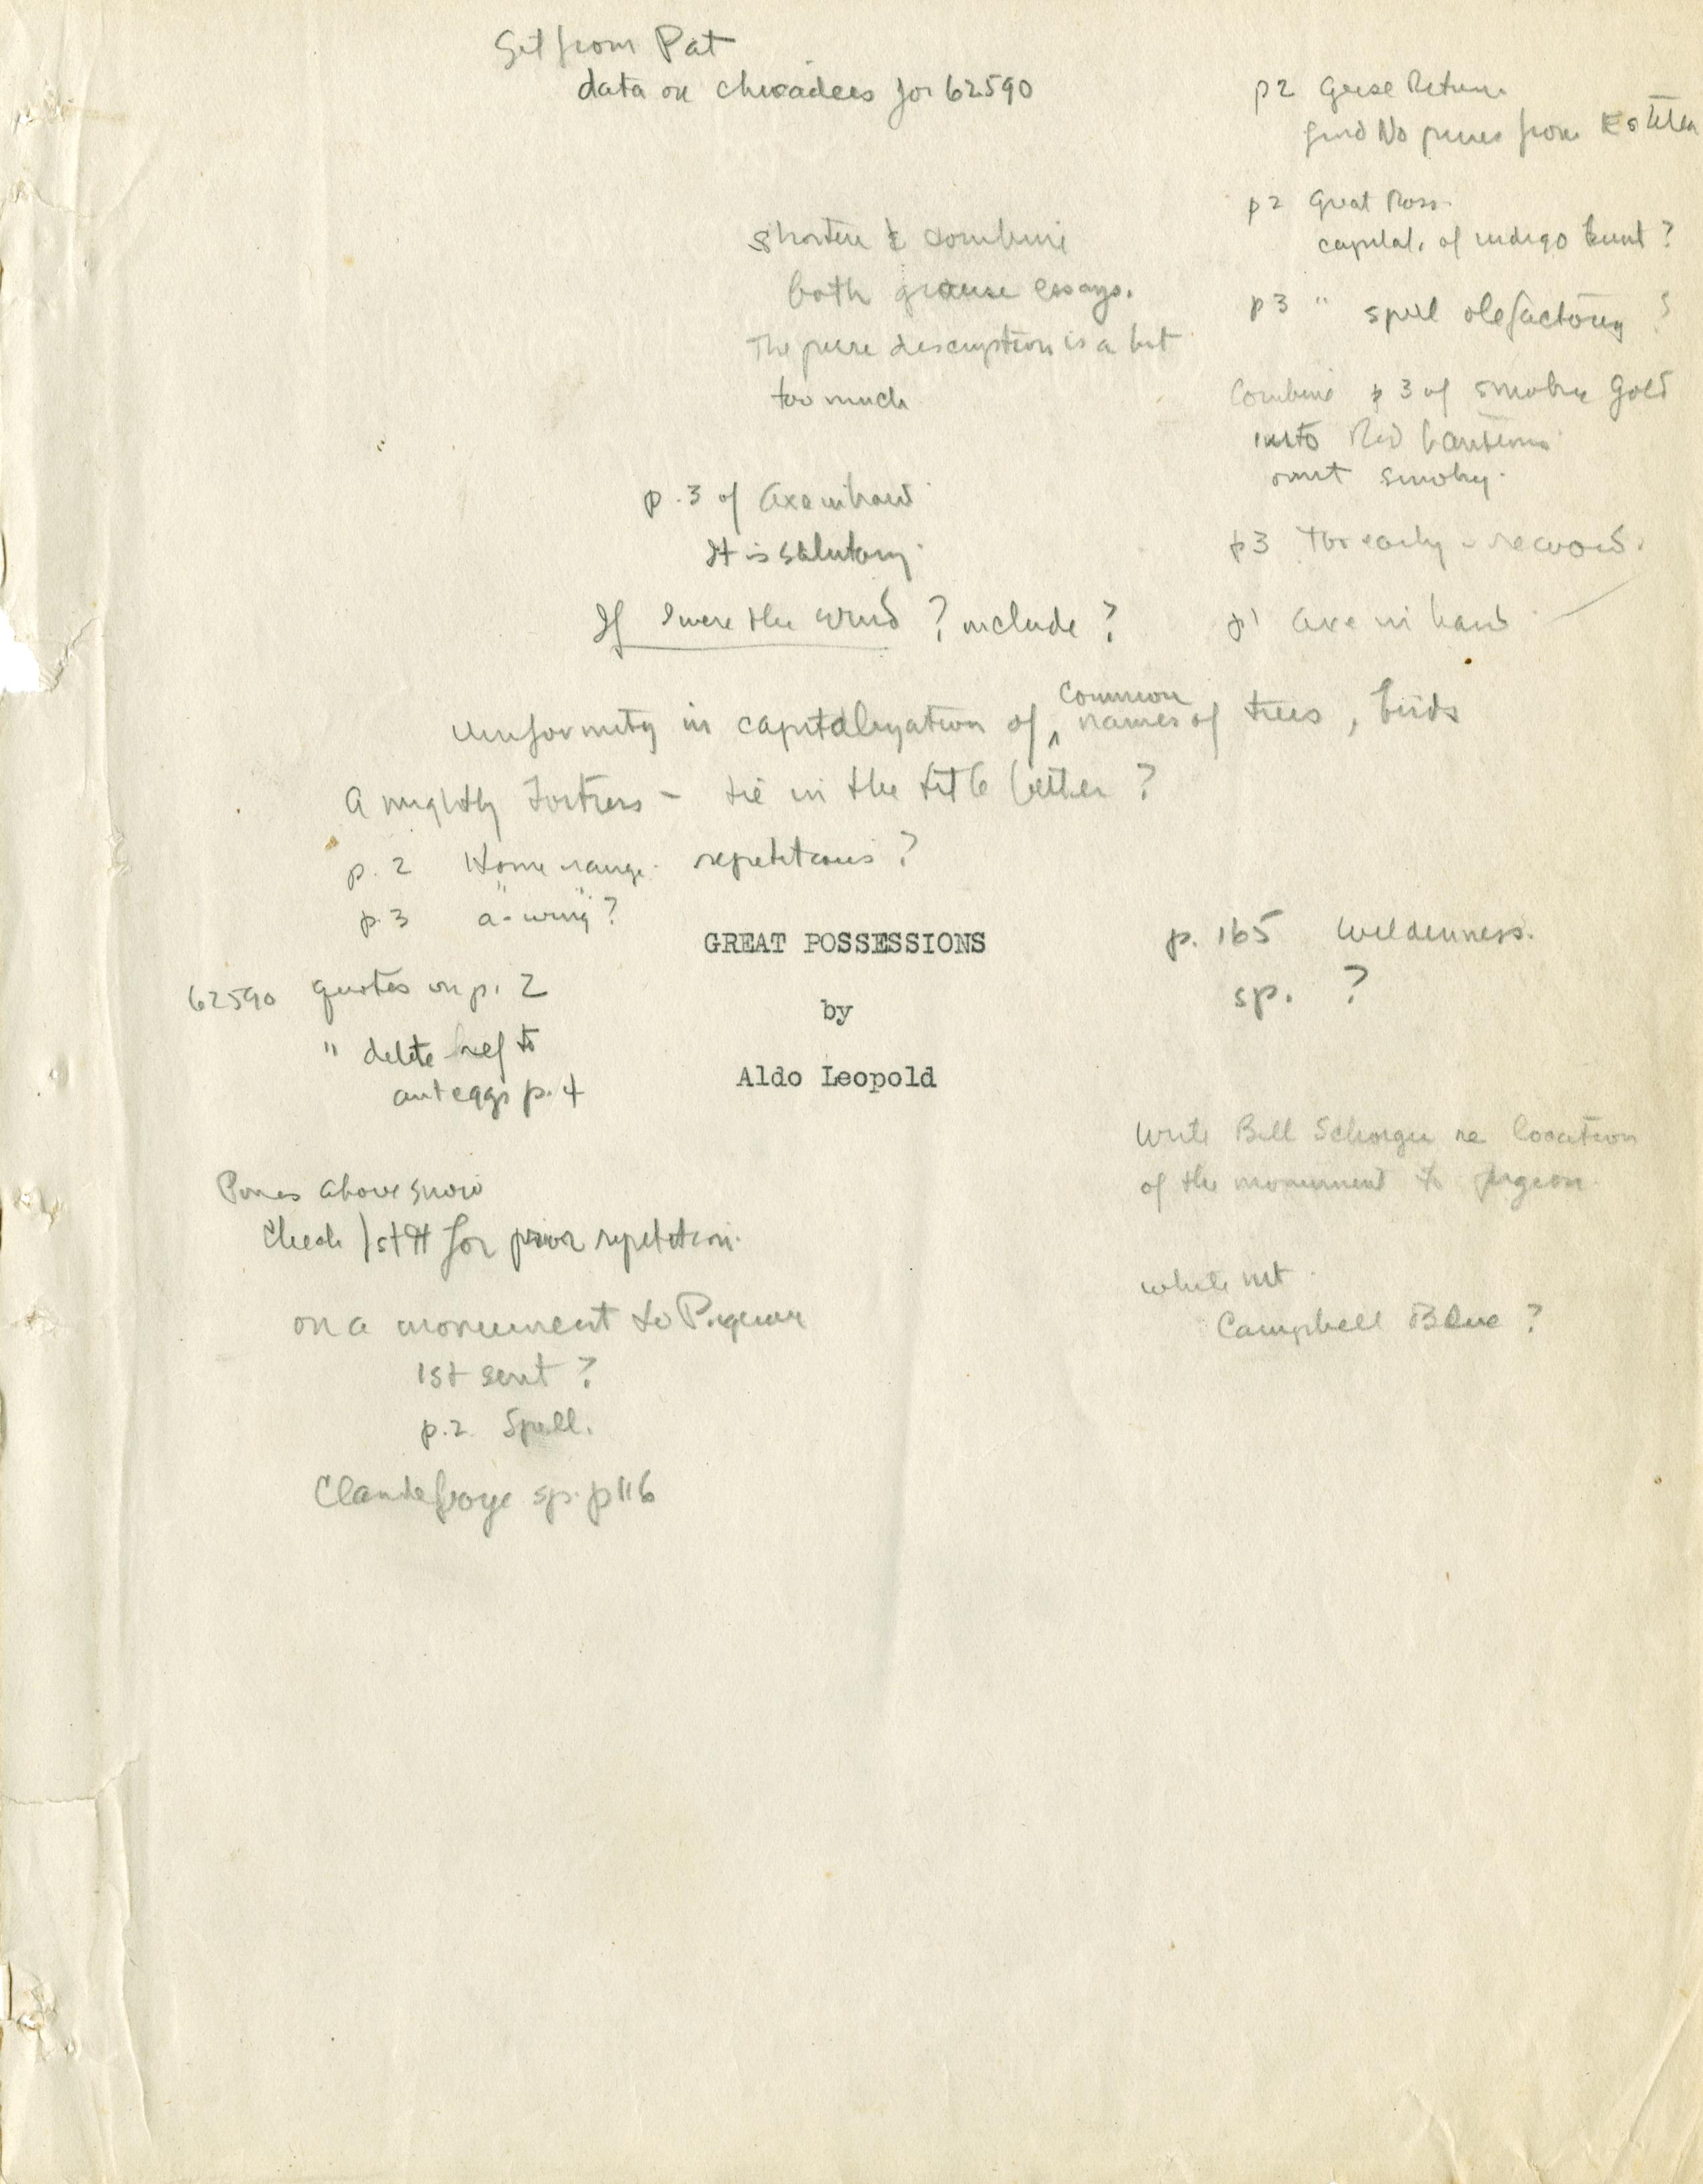 Get from Pat
data on chicadees for 62590
p2 Geese Return
find No from Estella
p2 Great Poss.
capital. of indigo bunt?
p3 " spell olefactory ?
Shorten & combine
both grouse essays.
The pure description is a bit
too much
Combine p 3 of smoky Gold
into Red Lanterns
omit smoky.
p.3 of Axe in hand
It is salutary.
p3 Too early - record.
If I were the wind ? include ?
p1 axe in hand
Uniformity in capitalization of common names of trees, birds
A mighty Fortress - tie in the title better ?
p. 2 Home range. repetitious ?
p.3 "a-wing"?
GREAT POSSESSIONS
by
Aldo Leopold
p. 165 Wildenness.
sp. ?
62590 quotes on p. 2
" delete ref to
ant eggs p. 4
Write Bill Schorger re location
of the monument to pigeon.
Pines above snow
Check 1st ¶ for prior repetition.
white mt.
Campbell Blue ?
on a monument to Pigeon
1st sent ?
p.2 Spell.
sp. p 116